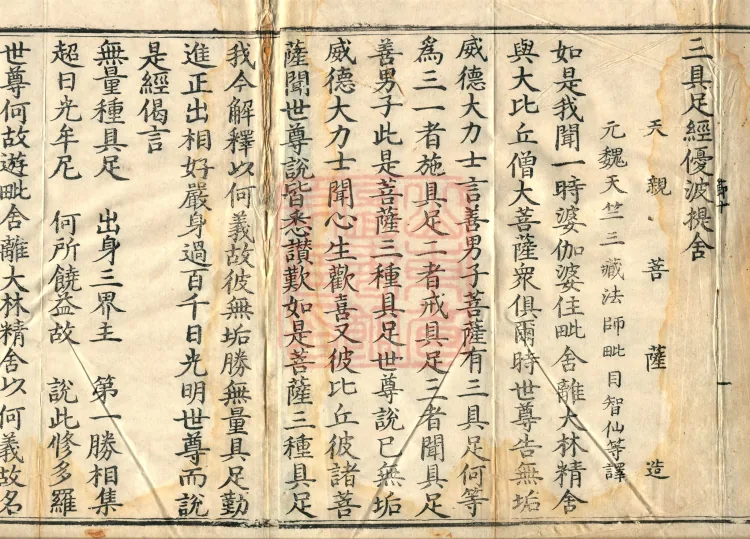 三具足經優波提舍
天親菩薩造
元魏天竺三藏法師毗目智仙等譯
如是我聞一時婆伽婆住毗舍離大林精舍
與大比丘僧大菩薩衆俱爾時世尊告無垢
威德大力士言善男子菩薩有三具足何等
為三一者施具足二者戒具足三者聞具足
善男子此是菩薩三種具足世尊說已無垢
威德大力士聞心生歡喜又彼比丘彼諸菩
薩聞世尊說皆悉讃歎如是菩薩三種具足
我今解釋以何義故彼無垢勝無量具足勤
進正出相好嚴身過百千日光明世尊而說
是經偈言
無量種具足 出身三界主 第一勝相集
超日光牟尼 何所饒益故 說此修多羅
世尊何故遊毗舍離大林精舍以何義故名